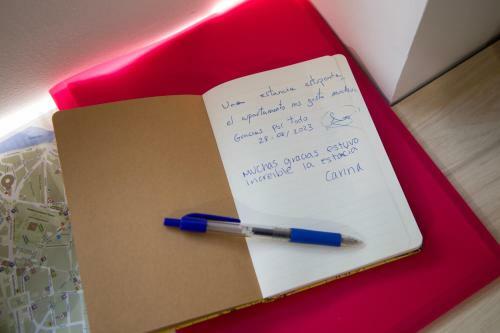 Una estancia estupenda,
el apartamento nos gusta mucho.
Gracias por todo
28-08/2023
Muchas gracias estuvo
increíble la estancia
Carina